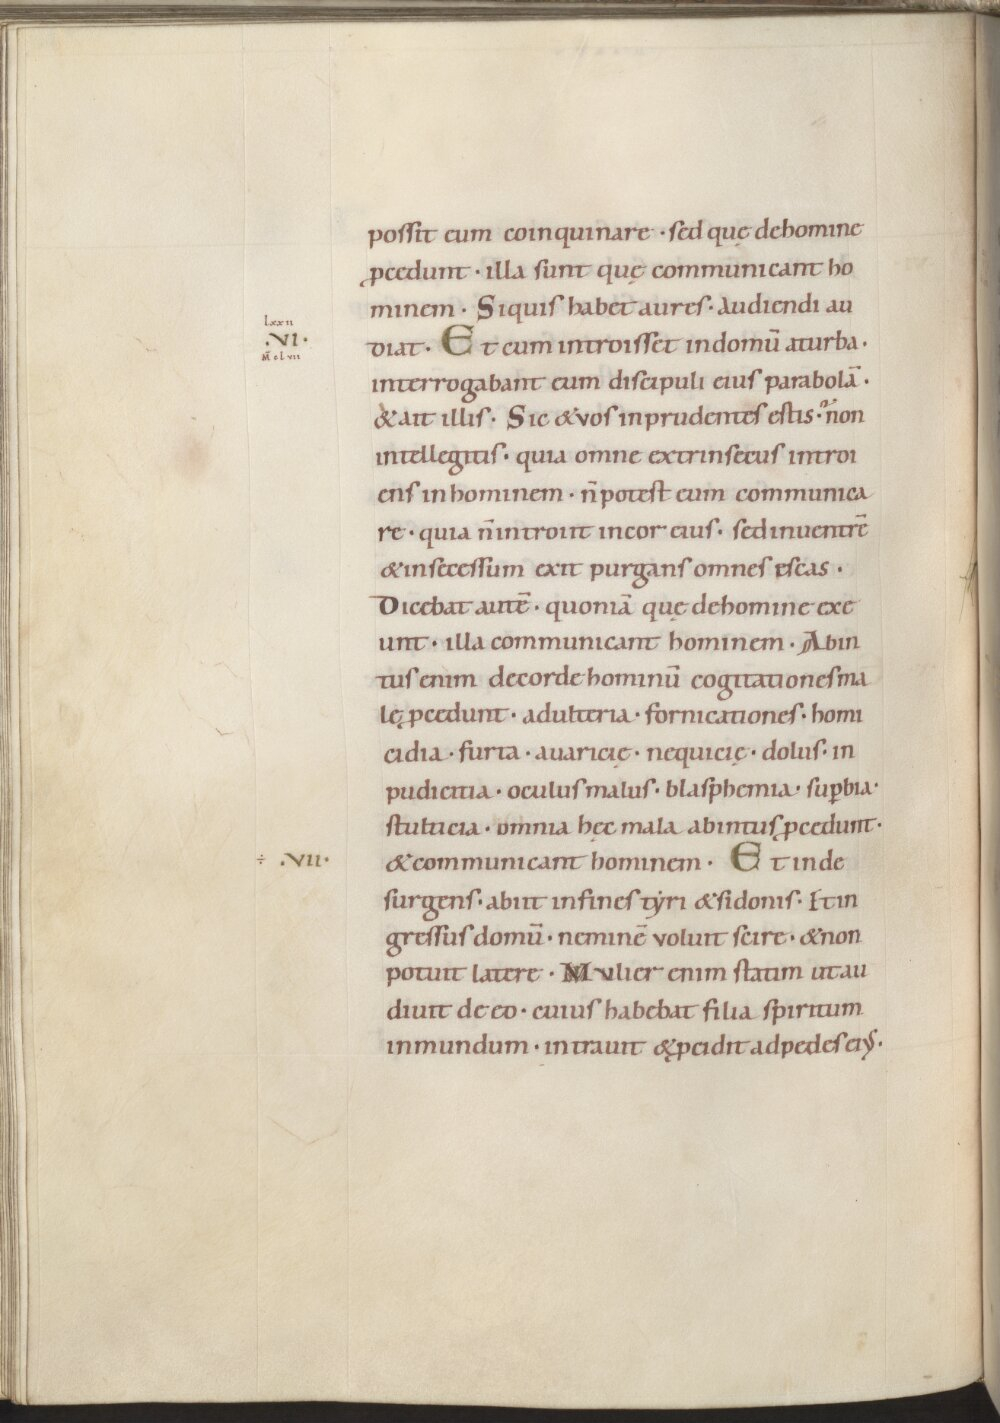 possit eum coinquinare · sed quę dehomine
ꝓcedunt · illa sunt quę communicant ho
minem · Siquis habet aures · audiendi au
lxxii
·VI·
M̄ clvii
diat · Et cum introisset indomū aturba ·
interrogabant eum discipuli eius parabolā ·
& ait illis · Sic & vos inprudentes estis · ñon
intellegitis · quia omne extrinsecus introi
ens inhominem · n̄ potest eum communica
re · quia n̄ introiit incor eius · sed inuentrē
& insecessum exit purgans omnes escas ·
Dicebat autē · quoniā quę dehomine exe
unt · illa communicant hominem · Abin
tus enim decorde hominū cogitationes ma
lę ꝓcedunt · adulteria · fornicationes · homi
cidia · furta · auaricię · nequicię · dolus · in
pudicitia · oculus malus · blasphemia · suꝑbia ·
stulticia · omnia hęc mala abintus ꝓcedunt ·
÷ ·VII·
& communicant hominem · Et inde
surgens · abiit infines tẏri & sidonis · Et in
gressus domū · neminē voluit scire · & non
potuit latere · Mulier enim statim ut au
diuit de eo · cuius habebat filia spiritum
inmundum · intrauit & ꝓcidit ad pedes eiꝰ ·